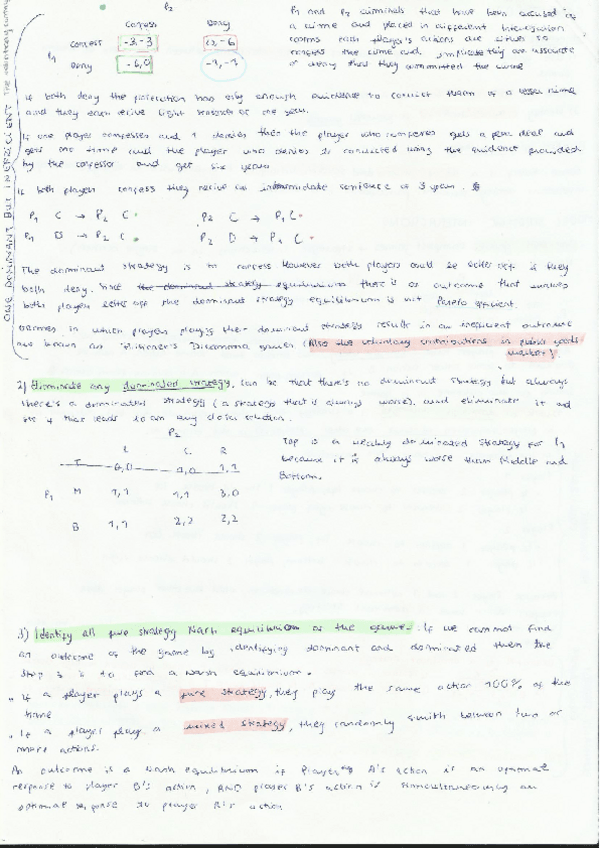 P2
Confess Deny
P1 Confess -3,-3 0,-6
Deny -6,0 -1,-1
P1 and P2 criminals that have been accused of
a crime and placed in different interrogation
rooms each player's actions are either to
confess the crime and implicate their associate
or deny that they committed the crime
ONE DOMINANT BUT INEFFICIENT
If both deny the prosecution has only enough evidence to convict them of a lesser crime
and they each receive light sentence of one year.
If one player confesses and 1 denies then the player who confesses gets a plea deal and
gets and the player who denies is convicted using the evidence provided
by the confessor and get six years
If both players confess they receive an intermediate sentence of 3 years.
P1 C → P2 C P2 C → P1 C
P1 D → P2 C P2 D → P1 C
The dominant strategy is to confess However both players could be better off if they
both deny. the dominant strategy equilibrium there is an outcome that makes
both players better off the dominant strategy equilibrium is not Pareto efficient.
Games in which players playing their dominant strategy result in an inefficient outcome
are known as Prisoner's Dilemma games (Also the voluntary contributions in public goods
markets).
2) Eliminate any dominated strategy, can be that there's no dominant strategy but always
there's a dominated strategy (a strategy that is always worse), and eliminate it and
see if that leads to any clear solution.
P2
L C R
T 0,0 1,1
P1 M 1,1 1,1 3,0
B 1,1 2,2 2,2
Top is a weakly dominated strategy for P1
because it is always worse than Middle and
Bottom.
3) Identify all pure strategy Nash equilibrium of the game. If we cannot find
an outcome of the game by identifying dominant and dominated then the
step 3 is to find a Nash equilibrium.
• If a player plays a pure strategy, they play the same action 100% of the
time
• If a player plays a mixed strategy, they randomly switch between two or
more actions.
An outcome is a Nash equilibrium if Player A's action is an optimal
response to player B's action, AND player B's action is simultaneously an
optimal response to player A's action